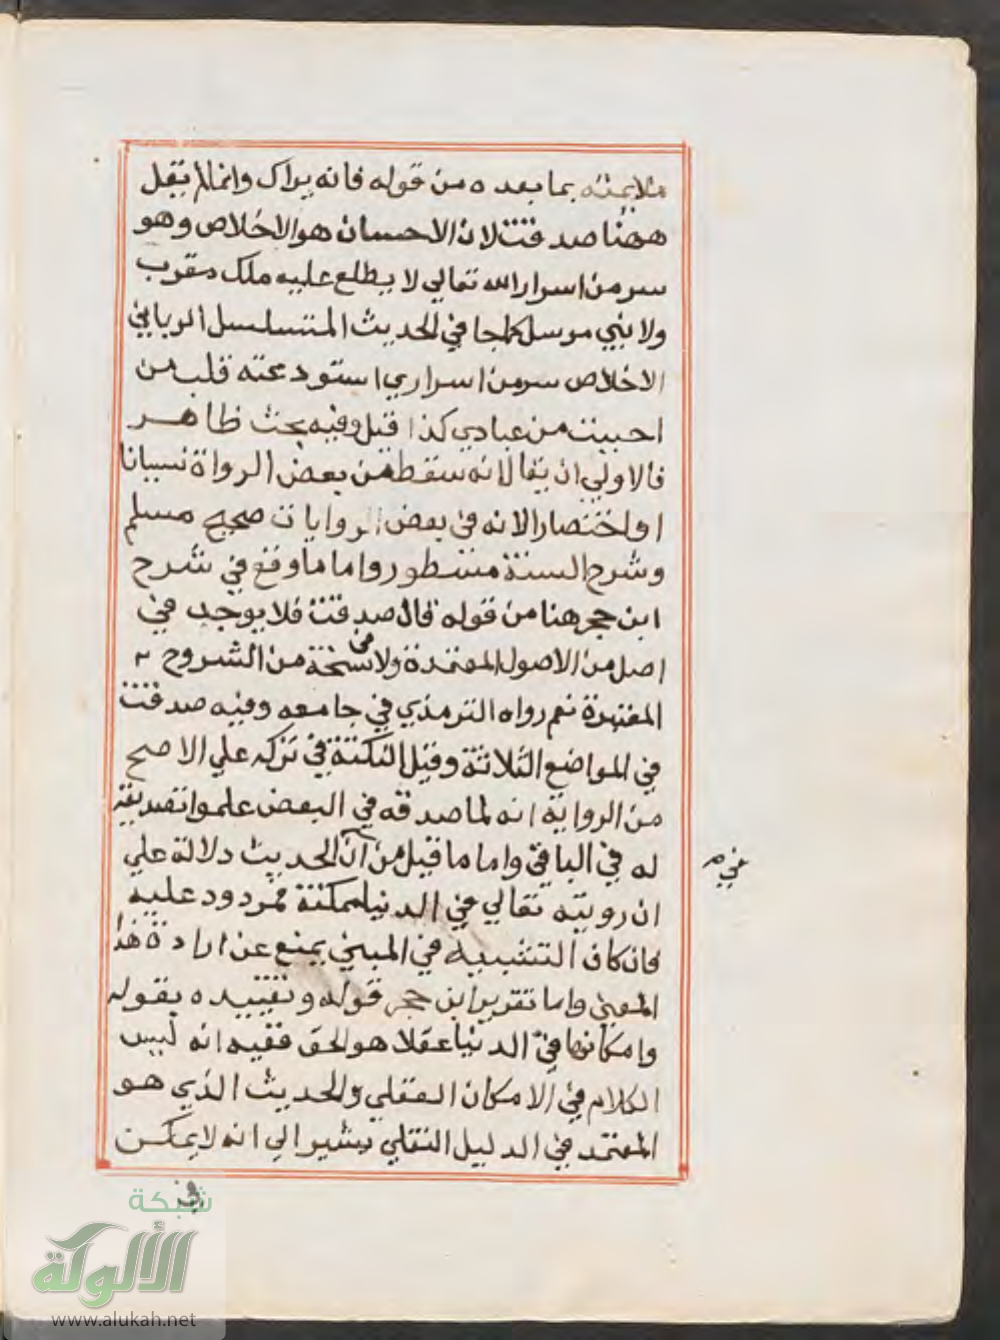 ملايمته بما بعده من قوله فانه يراك وانما لم يقل
ههنا صدقت لان الاحسان هو الاخلاص وهو
سر من اسرار الله تعالي لا يطلع عليه ملك مقرب
ولا نبي مرسل كما جا في الحديث المتسلسل الرباني
الاخلاص سر من اسراري استودعته قلب من
احببت من عبادي كذا قيل وفيه بحث ظاهر
فالاولي ان يقال انه سقط من بعض الرواة نسيانا
او اختصارا لانه في بعض الروايات صحيح مسلم
وشرح السنة مسطور واما ما وقع في شرح
ابن حجر هنا من قوله قال صدقت فلا يوجد في
اصل من الاصول المعتمدة ولا في نسخة من الشروح
المعتبرة نعم رواه الترمذي في جامعه وفيه صدقت
في المواضع الثلاثة وقيل النكتة في تركه علي الاصح
من الرواية انه لما صدقه في البعض علموا تصديقه
له في الباقي واما ما قيل من ان الحديث دلالة علي
ان رويته تعالي في الدنيا ممكنة فمردود عليه
فان كان التشبيه في المبني يمنع عن ارادة هذا
المعني واما تقرير ابن حجر قوله وتقييده بقوله
وامكانها في الدنيا عقلا هو الحق ففيه انه ليس
الكلام في الامكان العقلي والحديث الذي هو
المعتمد في الدليل النقلي يشير الي انه لا يمكن
في
شبكة
الألوكة
www.alukah.net